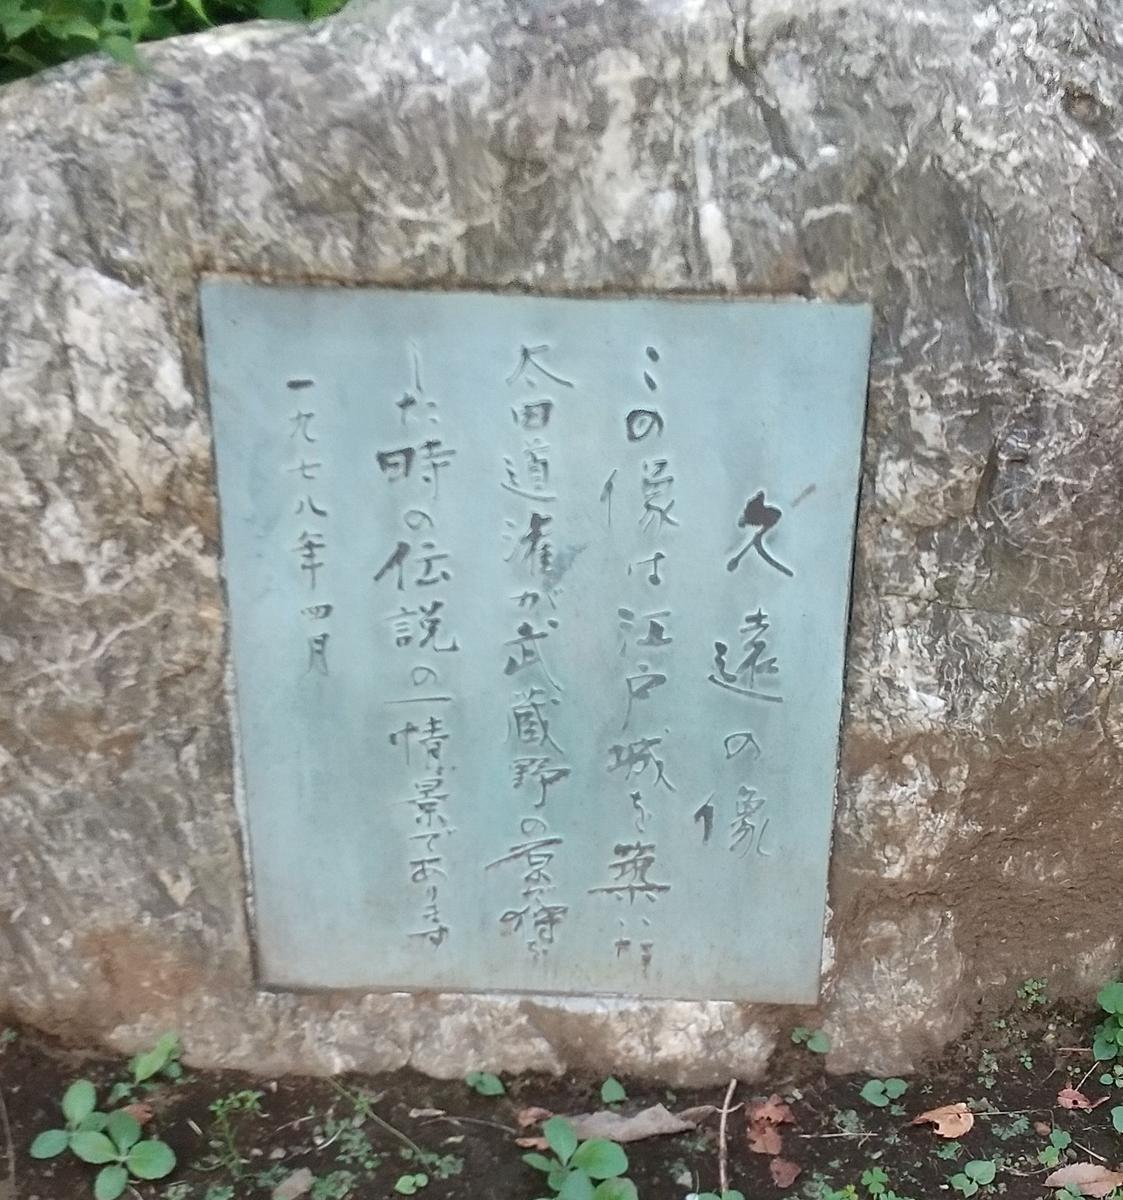 久遠の像
この像は江戸城を築いた
太田道灌が武蔵野の原に狩を
した時の伝説の一情景であります
一九七八年四月